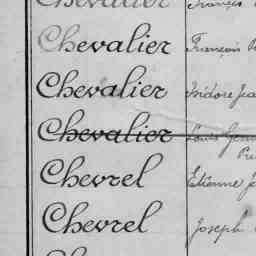 Chevalier François
Chevalier François
Chevalier Isidore
Chevalier Louis
Chevrel Etienne
Chevrel Joseph